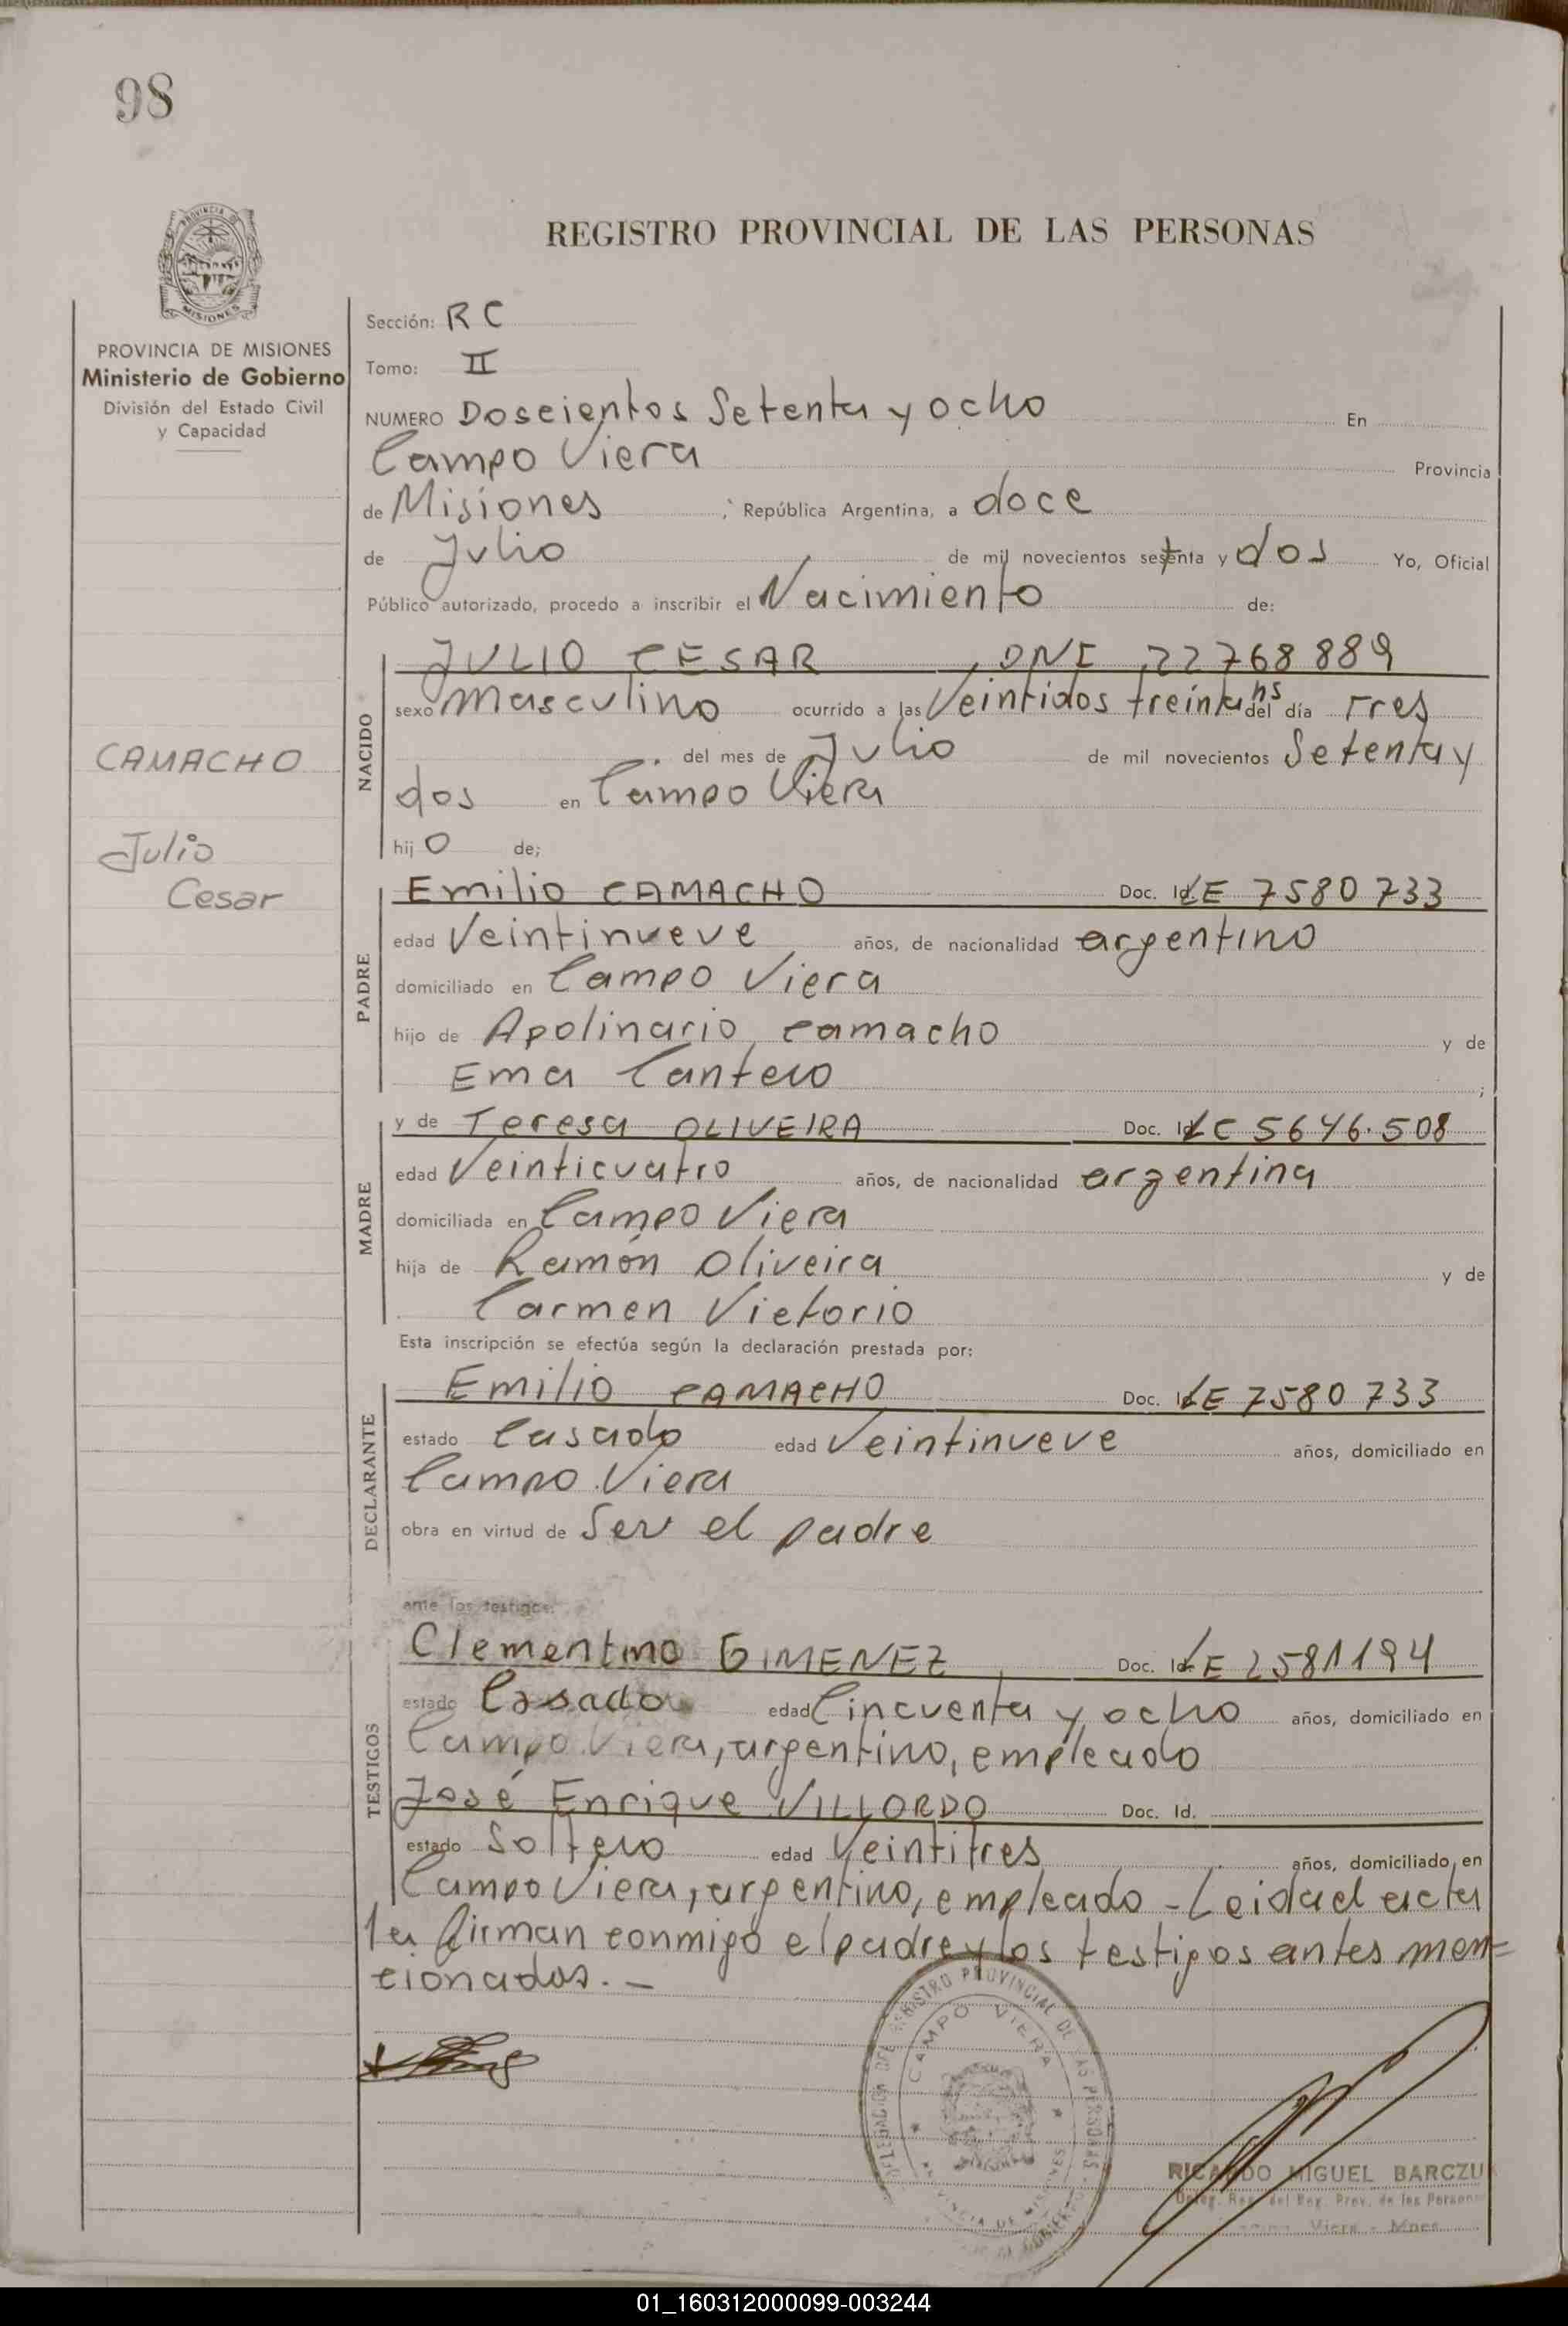 98
REGISTRO PROVINCIAL DE LAS PERSONAS
PROVINCIA DE MISIONES
Ministerio de Gobierno
División del Estado Civil
y Capacidad
CAMACHO
Julio
Cesar
Sección: R C
Tomo: II
NUMERO Doscientos Setenta y ocho En
Campo Viera Provincia
de Misiones ; República Argentina, a doce
de Julio de mil novecientos setenta y dos Yo, Oficial
Público autorizado, procedo a inscribir el Nacimiento de:
NACIDO
JULIO CESAR , DNI 22768889
sexo Masculino ocurrido a las Veintidos treinta hs del día Tres
del mes de Julio de mil novecientos Setenta y
dos en Campo Viera
hij O de;
PADRE
Emilio CAMACHO Doc. Id. LE 7580733
edad Veintinueve años, de nacionalidad argentino
domiciliado en Campo Viera
hijo de Apolinario Camacho y de
Ema Cantero ;
MADRE
y de Teresa OLIVEIRA Doc. Id. LC 5646.508
edad Veinticuatro años, de nacionalidad argentina
domiciliada en Campo Viera
hija de Ramón Oliveira y de
Carmen Victorio
Esta inscripción se efectúa según la declaración prestada por:
DECLARANTE
Emilio CAMACHO Doc. Id. LE 7580733
estado Casado edad Veintinueve años, domiciliado en
Campo Viera
obra en virtud de Ser el padre
ante los testigos:
TESTIGOS
Clementino GIMENEZ Doc. Id. LE 2581194
estado Casado edad Cincuenta y ocho años, domiciliado en
Campo Viera, argentino, empleado
José Enrique VILLORDO Doc. Id.
estado Soltero edad Veintitres años, domiciliado en
Campo Viera, argentino, empleado - Leida el acta
la firman conmigo el padre y los testigos antes men=
cionados. -
DELEGACION DEL REGISTRO PROVINCIAL DE LAS PERSONAS
CAMPO VIERA
PROVINCIA DE MISIONES
RICARDO MIGUEL BARCZU
del Reg. Prov. de las Person
Viera - Mnes
01_160312000099-003244